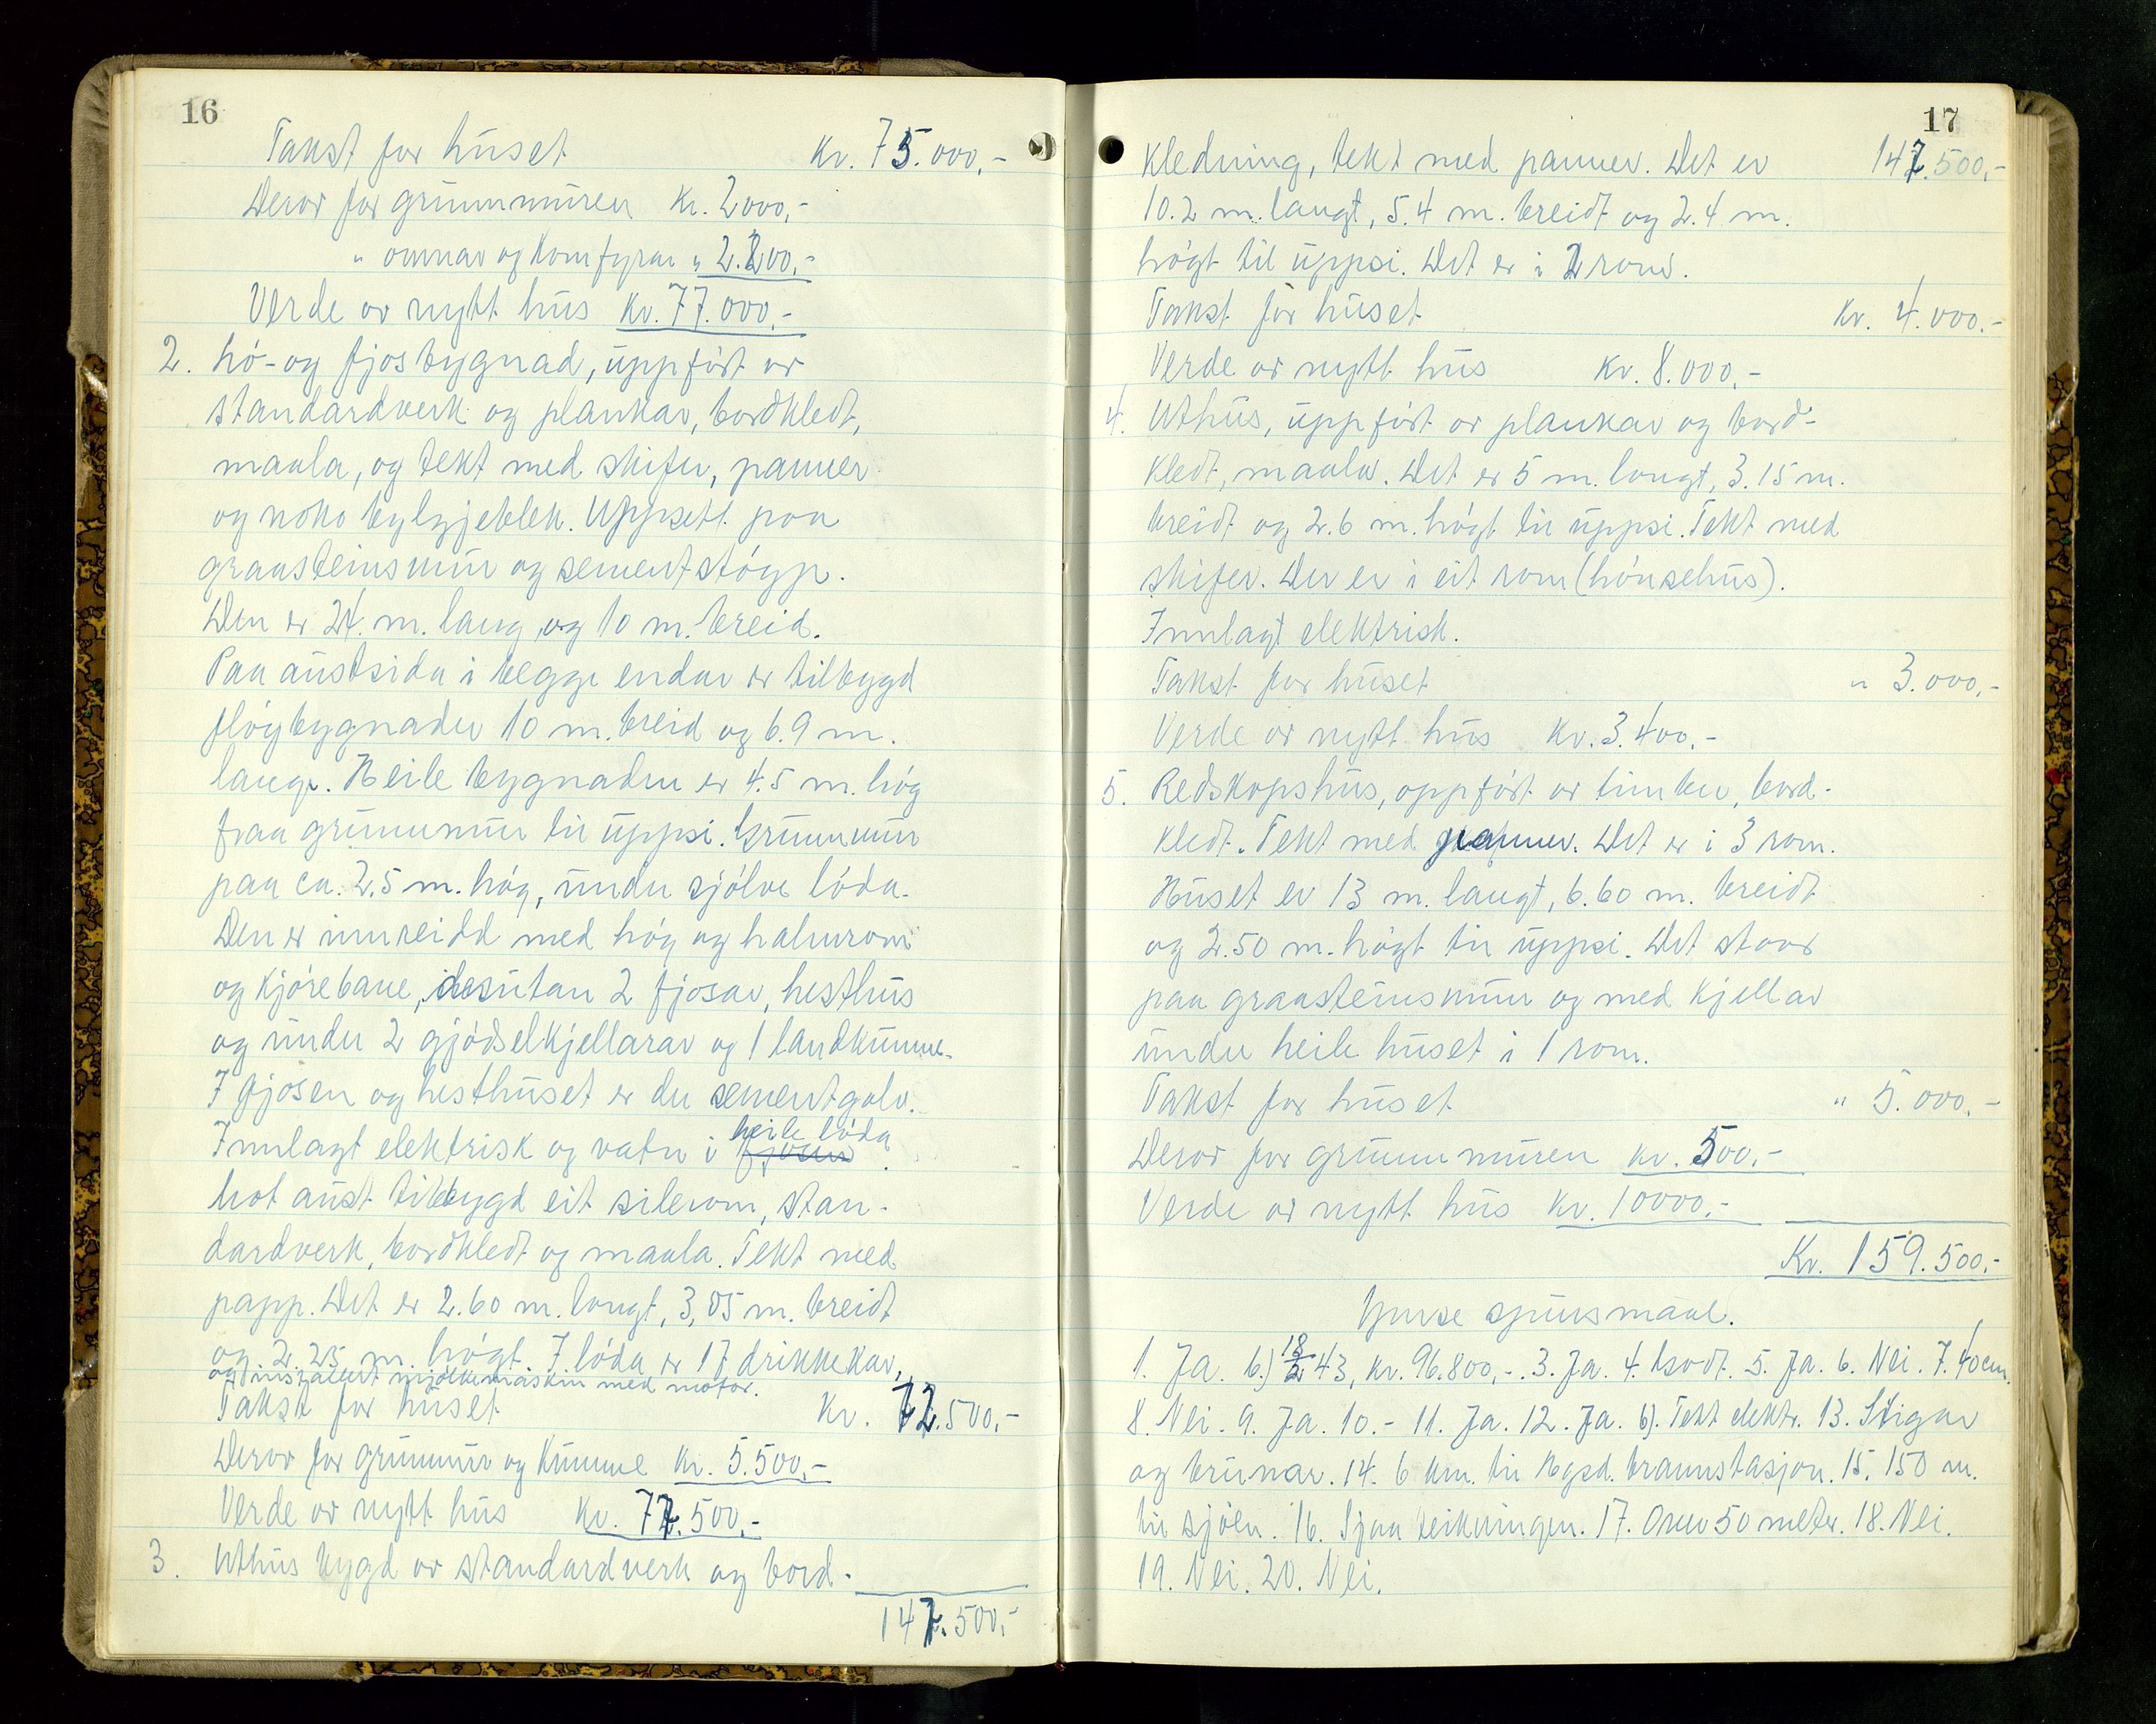 16
Takst for huset Kr. 75.000,-
Derav for grunnmuren Kr. 2000,-
" omnar og komfyrar " 2.200,-
Verde av nytt hus Kr. 77.000,-
2. hø- og fjosbygnad, uppført av
standardverk og plankar, bordkledt,
maala, og tekt med skifer, panner
og noko bylgjeblek. Uppsett paa
graasteinsmur og sementstøyp.
Den er 24. m. lang og 10 m. breid.
Paa austsida i begge endar er tilbygd
fløybygnader 10 m. breid og 6.9 m.
lange. Heile bygnaden er 4.5 m. høg
fraa grunnmur til uppsi. Grunnmur
paa ca. 2.5 m. høg, under sjølve løda.
Den er innreidd med høy og halmrom
og kjørebane, desutan 2 fjosar, hesthus
og under 2 gjødselkjellarar og 1 landkumme.
I fjosen og hesthuset er der sementgolv.
heile løda
Innlagt elektrisk og vatn i fjosen.
Mot aust tilbygd eit silerom, stan-
dardverk, bordkledt og maala. Tekt med
papp. Det er 2.60 m. langt, 3,05 m. breidt
og 2.25 m. høgt. I løda er 17 drikkekar,
og installert mjølkemaskin med motor.
Takst for huset Kr. 72.500,-
Derav for grunnmur og kumme Kr. 5.500,-
Verde av nytt hus Kr. 77.500,-
3. Uthus bygd av standardverk og bord-
147.500,-
17
kledning, tekt med panner. Det er 147.500,-
10.2 m. langt, 5.4 m. breidt og 2.4 m.
høgt til uppsi. Det er i 2 rom.
Takst for huset Kr. 4.000.-
Verde av nytt hus Kr. 8.000,-
4. Uthus, uppført av plankar og bord-
kledt, maala. Det er 5 m. langt, 3.15 m.
breidt og 2.6 m. høgt til uppsi. Tekt med
skifer. Der er i eit rom (hønsehus).
Innlagt elektrisk.
Takst for huset " 3.000,-
Verde av nytt hus Kr. 3.400.-
5. Redskapshus, oppført av timber, bord-
kledt. Tekt med panner. Det er i 3 rom.
Huset er 13 m. langt, 6.60 m. breidt
og 2.50 m. høgt til uppsi. Det staar
paa graasteinsmur og med kjellar
under heile huset i 1 rom.
Takst for huset " 5.000,-
Derav for grunnmuren kr. 500,-
Verde av nytt hus Kr. 10000,-
Kr. 159.500,-
Ymse spursmaal.
1. Ja. b) 18/2 43, Kr. 96.800,-. 3. Ja. 4. Godt. 5. Ja. 6. Nei. 7. 40cm.
8. Nei. 9. Ja. 10.- 11. Ja. 12. Ja. b). Tekt elektr. 13. Stigar
og brunnar. 14. 6 km. til Hgsd. brannstasjon. 15. 150 m.
til sjøen. 16. Sjaa teikningen. 17. Over 50 meter. 18. Nei.
19. Nei. 20. Nei.